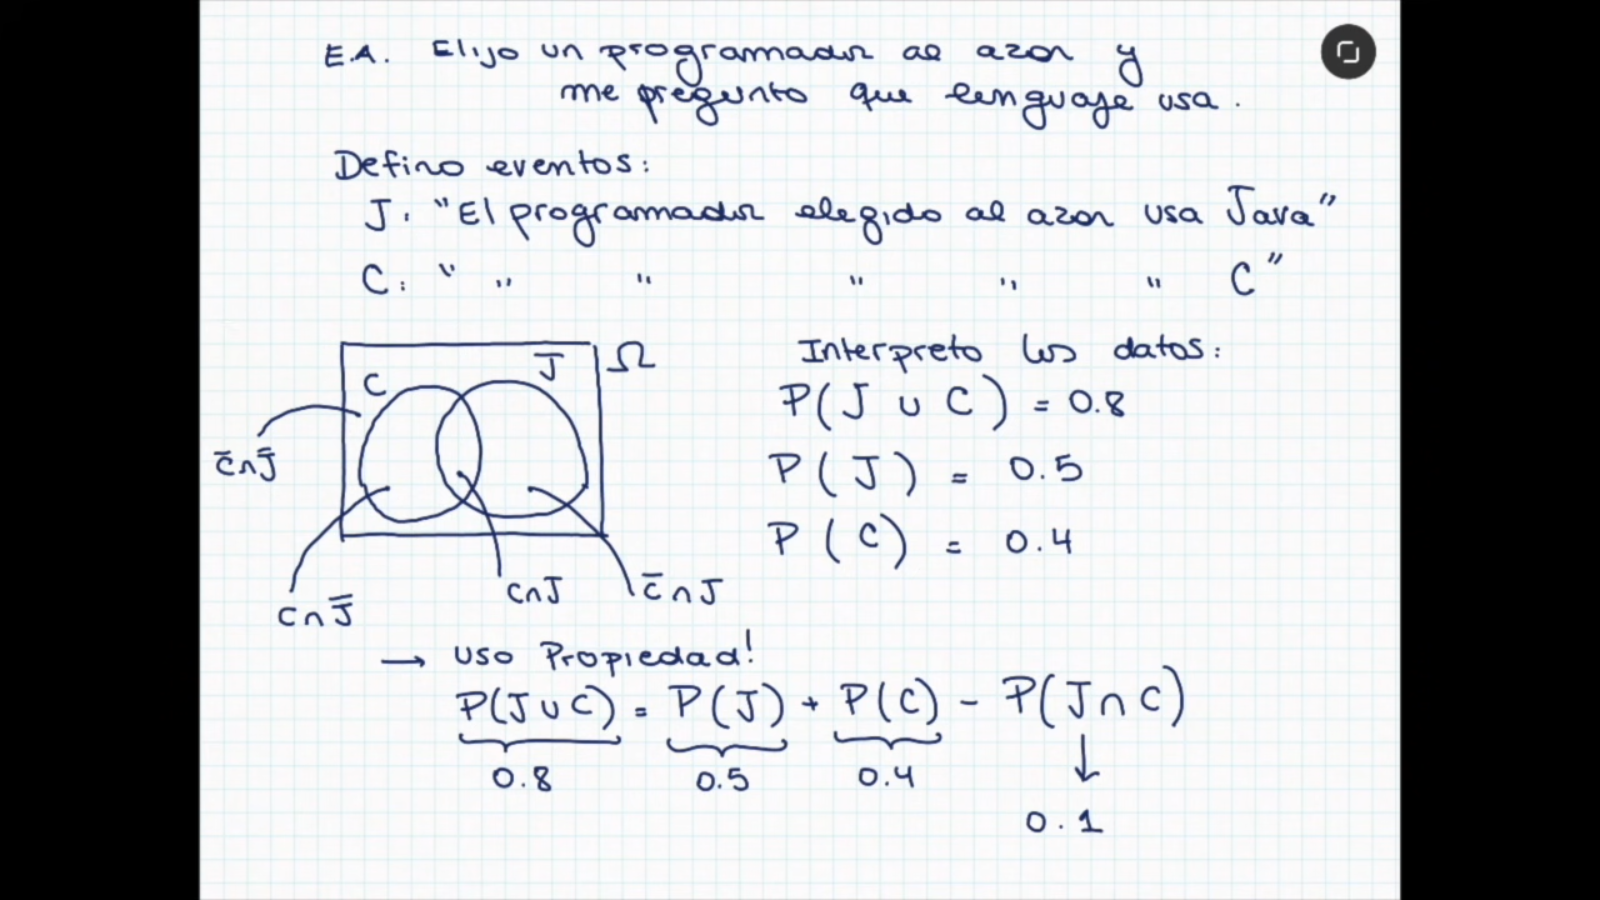 E.A. Elijo un programador al azar y
me pregunto que lenguaje usa.
Defino eventos:
J: "El programador elegido al azar usa Java"
C: " " " " " " C"
C J Ω
C̄∩J̄
C∩J̄
C∩J
C̄∩J
Interpreto los datos:
P(J ∪ C) = 0.8
P(J) = 0.5
P(C) = 0.4
→ uso Propiedad!
P(J∪C) = P(J) + P(C) - P(J∩C)
0.8 0.5 0.4 ↓
0.1